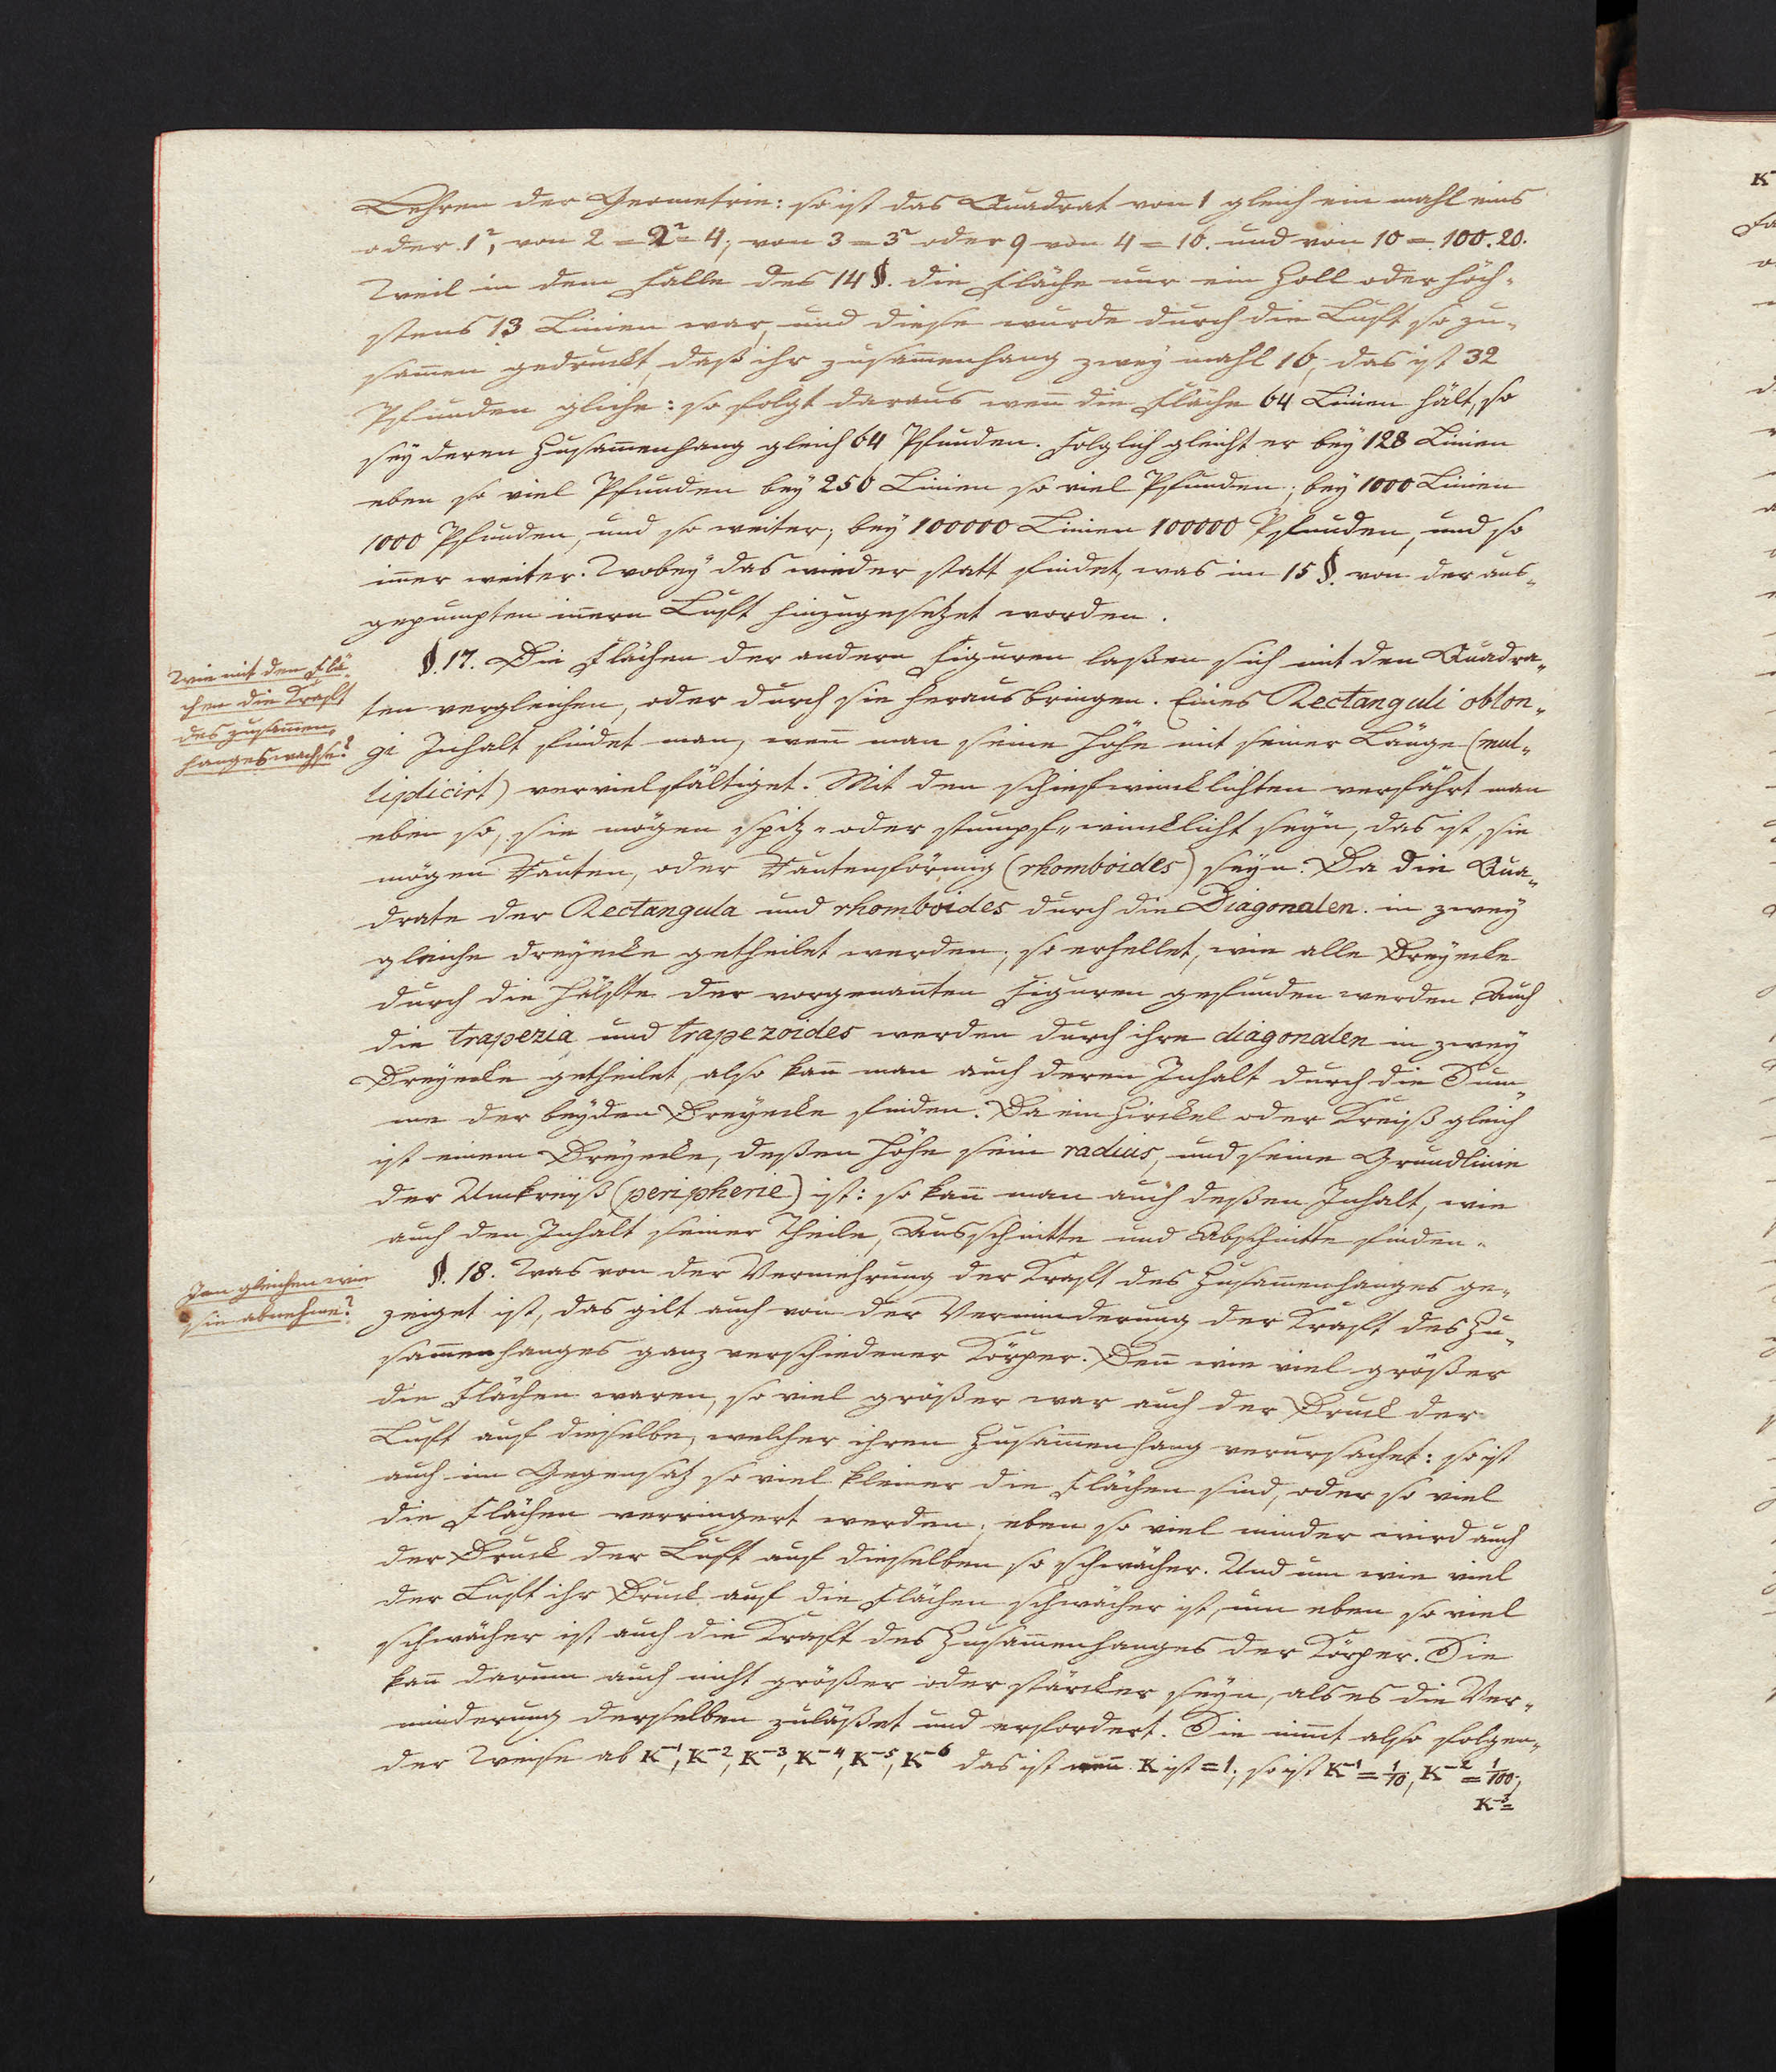 Lehren der Geometrie: so ist das Quadrat von 1 gleich ein mahl eins
oder 1², von 2 = 2² = 4; von 3 = 3² oder 9 von 4 = 16. und von 10 = 100. 20.
Weil in dem Falle des 14 §. die Fläche nur ein Zoll oder höch-
stens 13 Linien war, und diese wurde durch die Luft so zu-
sam̄en gedruckt, daß ihr zusam̄enhang zwey mahl 16, das ist 32
Pfunden gliche: so folgt daraus wen̄ die Fläche 64 Linien hält, so
sey deren Zusam̄enhang gleich 64 Pfunden. Folglich gleicht er bey 128 Linien
eben so viel Pfunden bey 256 Linien so viel Pfunden; bey 1000 Linien
1000 Pfunden, und so weiter; bey 100000 Linien 100000 Pfunden, und so
im̄er weiter. Wobey das wieder statt findet, was im 15 §. von der aus-
gepumpten in̄ern Luft hinzugesetzet worden.
Wie mit den Flä-
chen die Kraft
des zusam̄en-
hanges wachse?
§. 17. Die Flächen der andern Figuren laßen sich mit den Quadra-
ten vergleichen, oder durch sie herausbringen. Eines Rectanguli oblon-
gi Inhalt findet man, wen̄ man seine Höhe mit seiner Länge (mul-
tiplicirt) vervielfältiget. Mit den schiefwincklichten verfährt man
eben so, sie mögen spitz- oder stumpf-wincklicht seyn, das ist, sie
mögen Rauten, oder Rautenförmig (rhomboides) seyn. Da die Qua-
drate der Rectangula und rhomboides durch die Diagonalen in zwey
gleiche dreyecke getheilet werden; so erhellet, wie alle Dreyecke
durch die Hälfte der vorgenan̄ten Figuren gefunden werden. Auch
die trapezia und trapezoides werden durch ihre diagonalen in zwey
Dreyecke getheilet, also kan̄ man auch deren Inhalt durch die Sum-
me der beyden Dreyecke finden. Da ein Zirckel oder Kreiß gleich
ist einem Dreyecke, deßen Höhe sein radius, und seine Grundlinie
der Umkreiß (peripherie) ist: so kan̄ man auch deßen Inhalt, wie
auch den Inhalt seiner Theile, Ausschnitte und Abschnitte finden.
Im gleichen wie
sie abnehme?
§. 18. Was von der Vermehrung der Kraft des Zusam̄enhanges ge-
zeiget ist, das gilt auch von der Verminderung der Kraft des Zu-
sam̄enhanges ganz verschiedener Körper. Den̄ wie viel größer
die Flächen waren, so viel größer war auch der Druck der
Luft auf dieselbe, welcher ihren Zusam̄enhang verursachet: so ist
auch im Gegensatz so viel kleiner die Flächen sind, oder so viel
die Flächen verringert werden; eben so viel minder wird auch
der Druck der Luft auf dieselben so schwächer. Und um wie viel
der Luft ihr Druck auf die Flächen schwächer ist, um eben so viel
schwächer ist auch die Kraft des Zusam̄enhanges der Körper. Sie
kan̄ darum auch nicht größer oder stärcker seyn, als es die Ver-
minderung derselben zuläßet und erfordert. Sie nim̄t also folgen-
der Weise ab K⁻¹, K⁻², K⁻³, K⁻⁴, K⁻⁵, K⁻⁶ das ist wen̄ K ist = 1; so ist K⁻¹ = 1/10, K⁻² = 1/100;
K⁻³ =